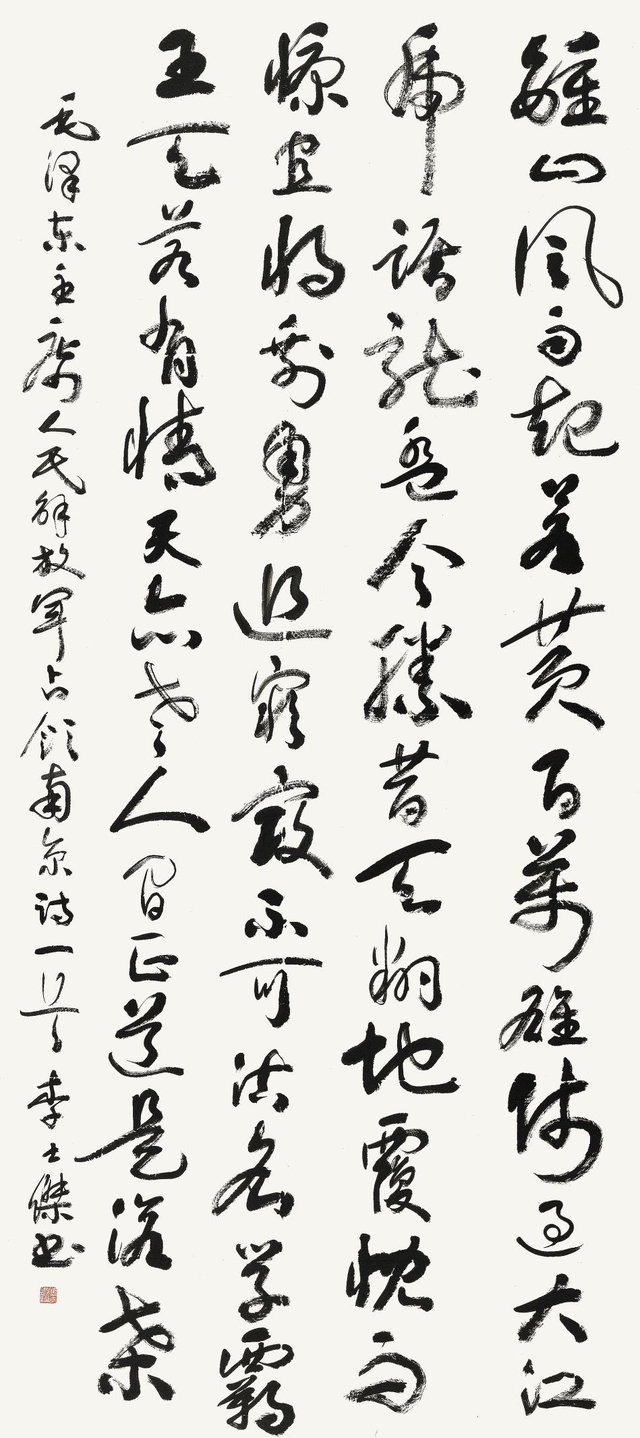 鍾山風雨起蒼黃百萬雄師過大江
虎踞龍盤今勝昔天翻地覆慨而
慷宜將剩勇追窮寇不可沽名學霸
王天若有情天亦老人間正道是滄桑
毛澤東主席人民解放軍占領南京詩一首 李士傑書